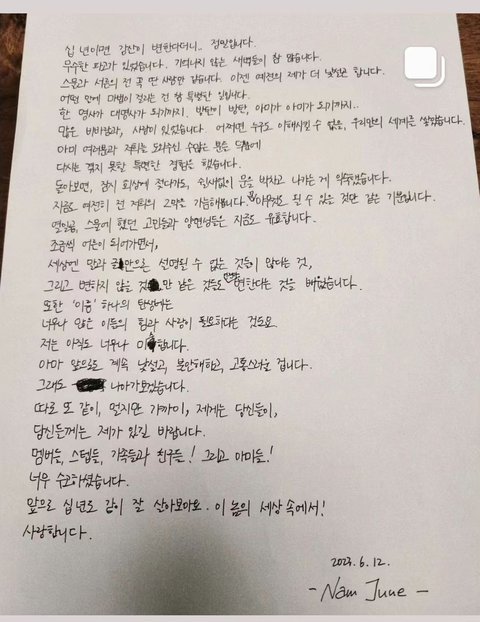 십 년이면 강산이 변한다더니.. 정말입니다.
무수한 파고가 있었습니다. 기억나지 않는 새벽들이 참 많습니다.
스물과 서른의 전 꼭 딴 사람만 같습니다. 이젠 예전의 제가 더 낯설곤 합니다.
어떤 연에 마법이 걸리는 건 참 특별한 일입니다.
한 명사가 대명사가 되기까지. 방탄이 방탄, 아미가 아미가 되기까지..
많은 비바람과, 사랑이 있었습니다. 어쩌면 누구도 이해시킬 수 없을, 우리만의 세계를 쌓았습니다.
아마 여러분과 저희를 도와주신 수많은 분들 덕분에
다시는 겪지 못할 특별한 경험을 했습니다.
돌아보면, 잠시 회상에 젖다가도, 쉼없이 문을 박차고 나가는 게 익숙했습니다.
지금도 여전히 전 저희의 2막은 가능해봅니다. 뭐 아무것도 될 수 있을 것만 같은 기분입니다.
열일곱, 스물에 했던 고민들과 양면성들은 지금도 유효합니다.
조금씩 어른이 되어가면서,
세상엔 말과 글만으로 설명될 수 없는 것들이 많다는 것,
그리고 변하지 않을 것만 같은 것들도 변한다는 것을 배웠습니다.
또한 '이름' 하나의 탄생에는
너무나 많은 이들의 힘과 사랑이 필요하다는 것도요.
저는 아직도 너무나 미숙합니다.
아마 앞으로도 계속 낯설고, 불안해하고, 고통스러울 겁니다.
그래도 나아가보겠습니다.
따로 또 같이, 멀지만 가까이, 제게는 당신들이,
당신들께는 제가 있길 바랍니다.
멤버들, 스텝들, 가족들과 친구들! 그리고 아미들!
너무 수고하셨습니다.
앞으로 십 년도 같이 잘 살아보아요. 이 놈의 세상 속에서!
사랑합니다.
2023. 6. 12.
- Nam June -